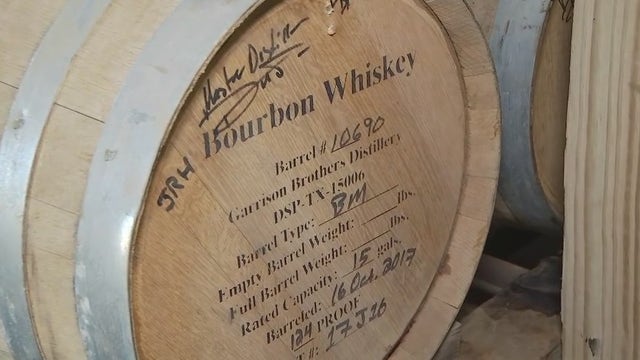 Master Distiller
Bourbon Whiskey
JRH
Barrel # 10690
Garrison Brothers Distillery
DSP-TX-15006
Barrel Type: BM
Empty Barrel Weight: lbs.
Full Barrel Weight: lbs.
Rated Capacity: 15 gals.
Barreled: 16 Oct. 2017
124 PROOF
T #: 17J16